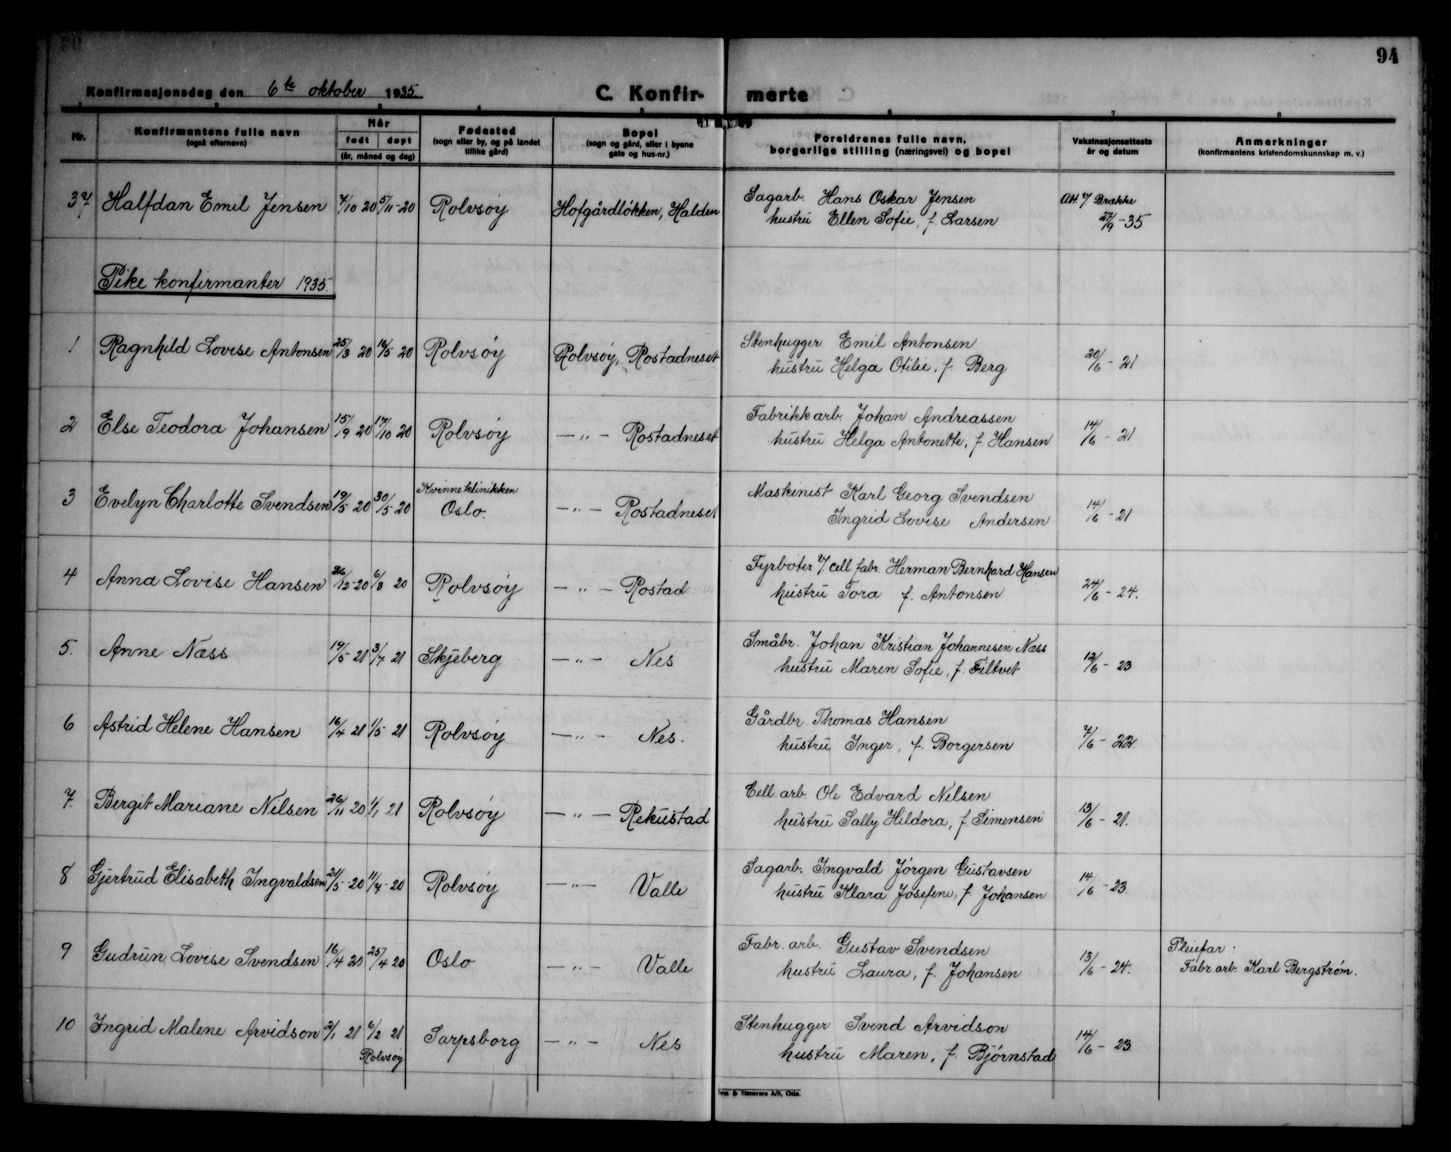 94
Konfirmasjonsdag den 6te oktober 1935.
C. Konfir- merte
Nr.
Konfirmantens fulle navn
(også efternavn)
Når
født døpt
(år, måned og dag)
Fødested
(sogn eller by, og på landet
tillike gård)
Bopel
(sogn og gård, eller i byene
gate og hus-nr.)
Foreldrenes fulle navn,
borgerlige stilling (næringsvei) og bopel
Vaksinasjonsattests
år og datum
Anmerkninger
(konfirmantens kristendomskunnskap m. v.)
37 Halfdan Emil Jensen 7/10 20 5/11-20 Rolvsøy Hofgårdløkken, Halden Sagarb. Hans Oskar Jensen Att v/ Brække
hustru Ellen Sofie, f. Larsen 27/9-35
Pike konfirmanter 1935.
1 Ragnhild Lovise Antonsen 25/3 20 16/5 20 Rolvsøy Rolvsøy, Rostadneset Stenhugger Emil Antonsen
hustru Helga Otilie, f. Berg 20/6-21
2 Else Teodora Johansen 15/9 20 17/10 20 Rolvsøy —"— Rostadneset Fabrikkarb. Johan Andreassen
hustru Helga Antonette, f. Hansen 14/6-21
3 Evelyn Charlotte Svendsen 19/5 20 30/5-20 Kvinneklinikken
Oslo. —"— Rostadneset Maskinist Karl Georg Svendsen
Ingrid Lovise Andersen 14/6-21
4 Anna Lovise Hansen 26/12-20 6/3 20 Rolvsøy —"— Rostad Fyrbøter v/ cell fabr. Herman Bernhard Hansen
hustru Tora f. Antonsen 24/6-24.
5. Anne Næss 19/5-21 3/7 21 Skjeberg —"— Nes Småbr. Johan Kristian Johannesen Næss
hustru Maren Sofie, f. Filtvet 12/6-23
6 Astrid Helene Hansen 16/4 21 1/5 21 Rolvsøy —"— Nes. Gårdbr. Thomas Hansen
hustru Inger, f. Borgersen 7/6-22
7. Bergit Mariane Nilsen 26/11 20 1/1 21 Rolvsøy —"— Rekustad Cell. arb. Ole Edvard Nilsen
hustru Sally Hildora, f. Simensen 13/6-21.
8 Gjertrud Elisabeth Ingvaldsen 21/5-20 11/7-20 Rolvsøy —"— Valle Sagarb. Ingvald Jørgen Gustavsen
hustru Klara Josefine, f. Johansen 14/6-23.
9 Gudrun Lovise Svendsen 16/4 20 25/4 20 Oslo —"— Valle Fabr. arb. Gustav Svendsen
hustru Laura, f. Johansen 13/6-24. Pleiefar.
Fabr. arb. Karl Bergstrøm.
10 Ingrid Malene Arvidson 2/1 21 6/2 21 Sarpsborg —"— Nes Stenhugger Svend Arvidson
Rolvsøy hustru Maren, f. Bjørnstad 14/6-23
& Simersen A/S, Oslo.